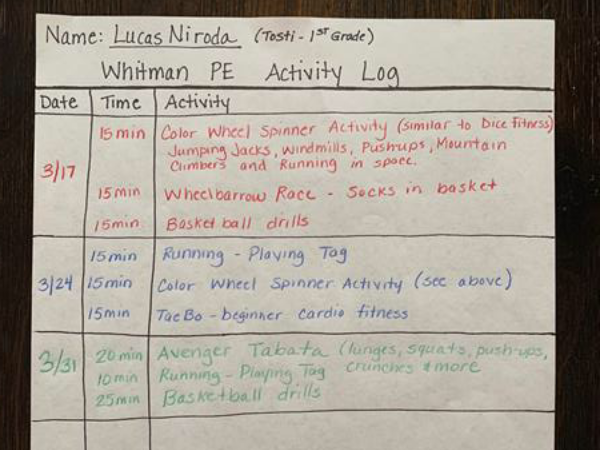 Name: Lucas Niroda (Tosti - 1st Grade)
Whitman PE Activity Log
Date Time Activity
3/17
15 min Color Wheel Spinner Activity (similar to Dice Fitness)
Jumping Jacks, Windmills, Pushups, Mountain
Climbers and Running in space.
15 min Wheelbarrow Race - Socks in basket
15 min Basket ball drills
3/24
15 min Running - Playing Tag
15 min Color Wheel Spinner Activity (see above)
15 min TaeBo - beginner cardio fitness
3/31
20 min Avenger Tabata (lunges, squats, push-ups,
crunches + more
10 min Running - Playing Tag
25 min Basketball drills